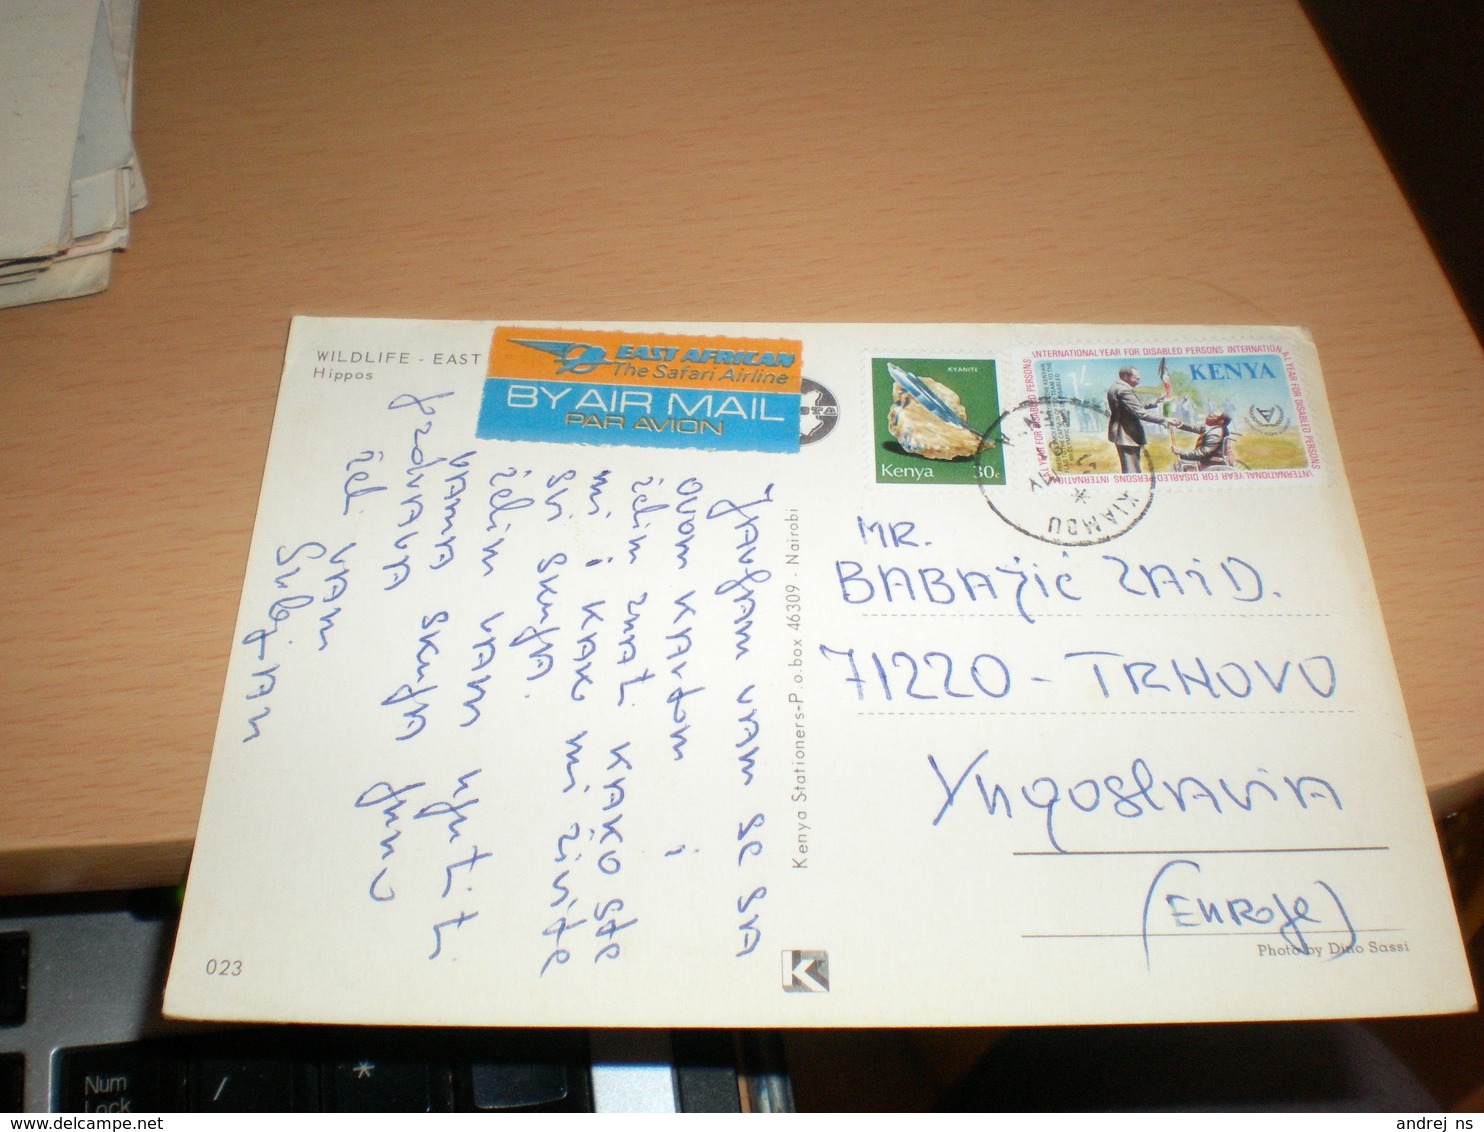 WILDLIFE - EAST
Hippos
EAST AFRICAN
The Safari Airline
BY AIR MAIL
PAR AVION
KYANITE
Kenya 30c
INTERNATIONAL YEAR FOR DISABLED PERSONS
KENYA
1/-
KIAMBU
Javljam vam se sa
ovom kartom i
želim znati kako ste
mi i kako mi živite
svi skupa.
želim vam
vama skupa
zdrava
želi vam
Sulejman
Kenya Stationers-P.o.box 46309 - Nairobi
MR.
BABAJiĆ ZAiD.
71220 - TRNOVO
Yugoslavia
(EuRoje)
Photo by Dino Sassi
023
K
Num
Lock
/
*
andrej ns